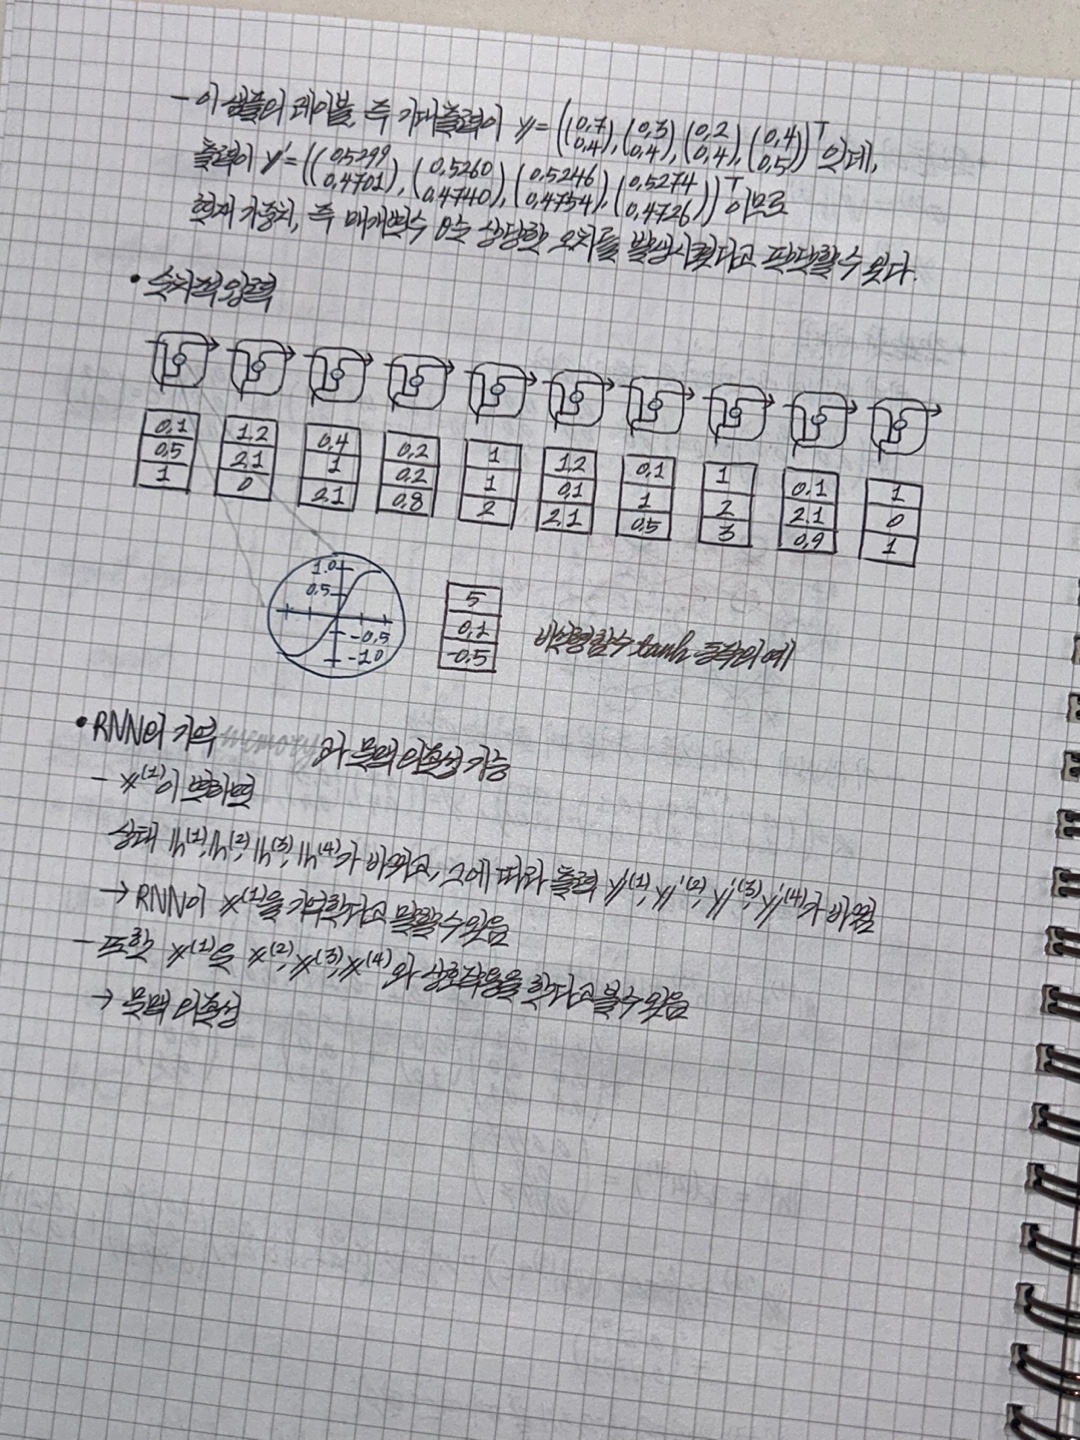 - 이 샘플의 레이블, 즉 기대출력이 y = ((0.7 0.4), (0.3 0.4), (0.2 0.4), (0.4 0.5))ᵀ 인데,
출력이 y' = ((0.5299 0.4701), (0.5260 0.4740), (0.5246 0.4754), (0.5274 0.4726))ᵀ 이므로
현재 가중치, 즉 매개변수 θ는 상당한 오차를 발생시킨다고 판단할 수 있다.
• 순차적 입력
0.1 1.2 0.4 0.2 1 1.2 0.1 1 0.1 1
0.5 2.1 1 0.2 1 0.1 1 2 2.1 0
1 0 2.1 0.8 2 2.1 0.5 3 0.9 1
1.0
0.5
-0.5
-1.0
5
0.1
-0.5
비선형함수 tanh 동작의 예
• RNN의 기억 memory 와 문맥 의존성 기능
- x⁽¹⁾이 변하면
상태 h⁽¹⁾, h⁽²⁾, h⁽³⁾, h⁽⁴⁾가 바뀌고, 그에 따라 출력 y'⁽¹⁾, y'⁽²⁾, y'⁽³⁾, y'⁽⁴⁾가 바뀜
→ RNN이 x⁽¹⁾을 기억한다고 말할 수 있음
- 또한 x⁽¹⁾은 x⁽²⁾, x⁽³⁾, x⁽⁴⁾와 상호작용을 한다고 볼 수 있음
→ 문맥 의존성